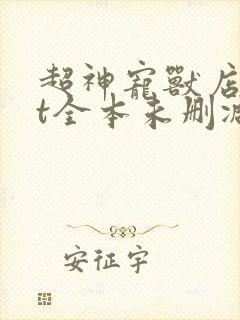 超神寵獸店
t全本未删减
安征宇